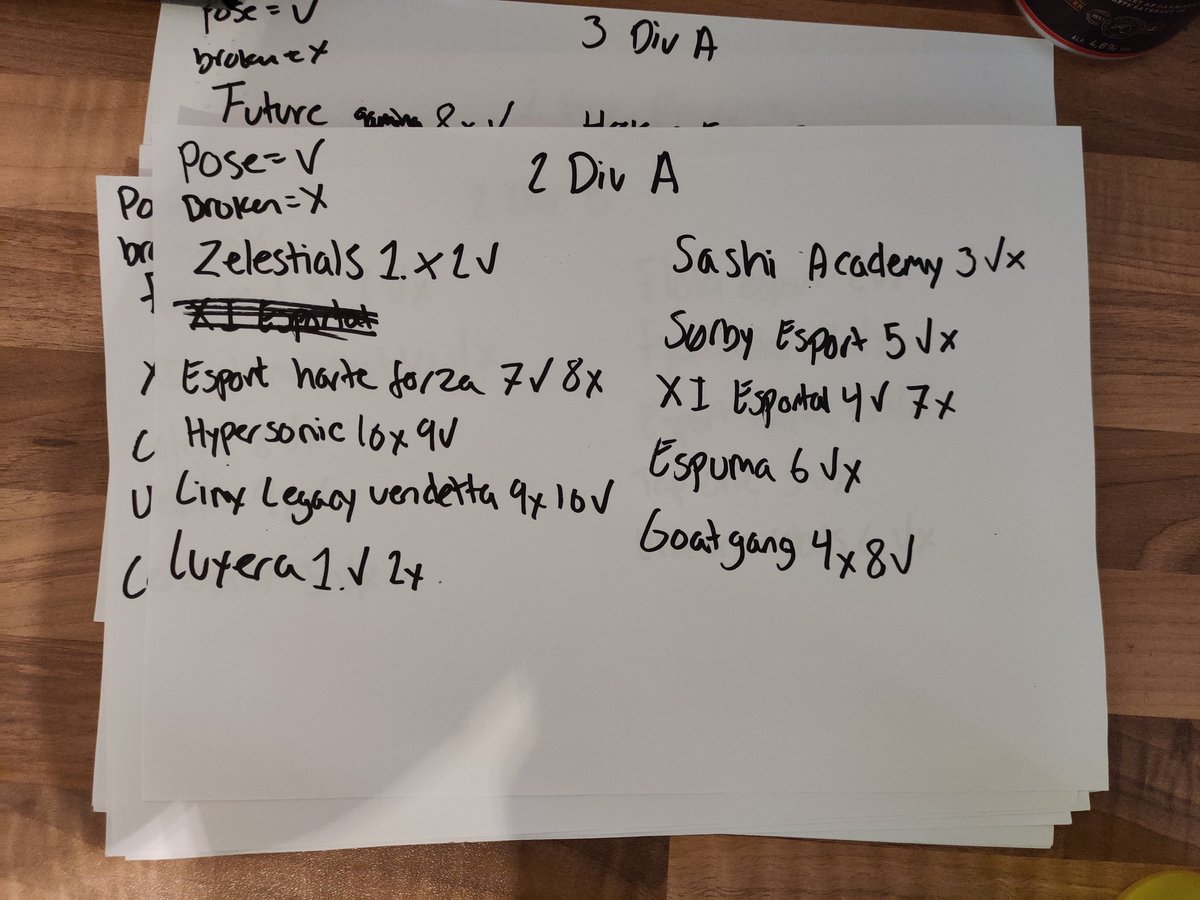 pose = √
broken = x
3 Div A
Future gaming 8x √
Pose = √
Broken = X
2 Div A
Zelestials 1. x 2 √
XI Esportal
Esport harte forza 7 √ 8x
Hypersonic 10x 9√
Linx Legacy vendetta 9x 10√
Luxera 1. √ 2x
Sashi Academy 3 √x
Sørby Esport 5 √x
XI Esportal 4√ 7x
Espuma 6 √x
Goatgang 4x 8√
Po
br
4,6%